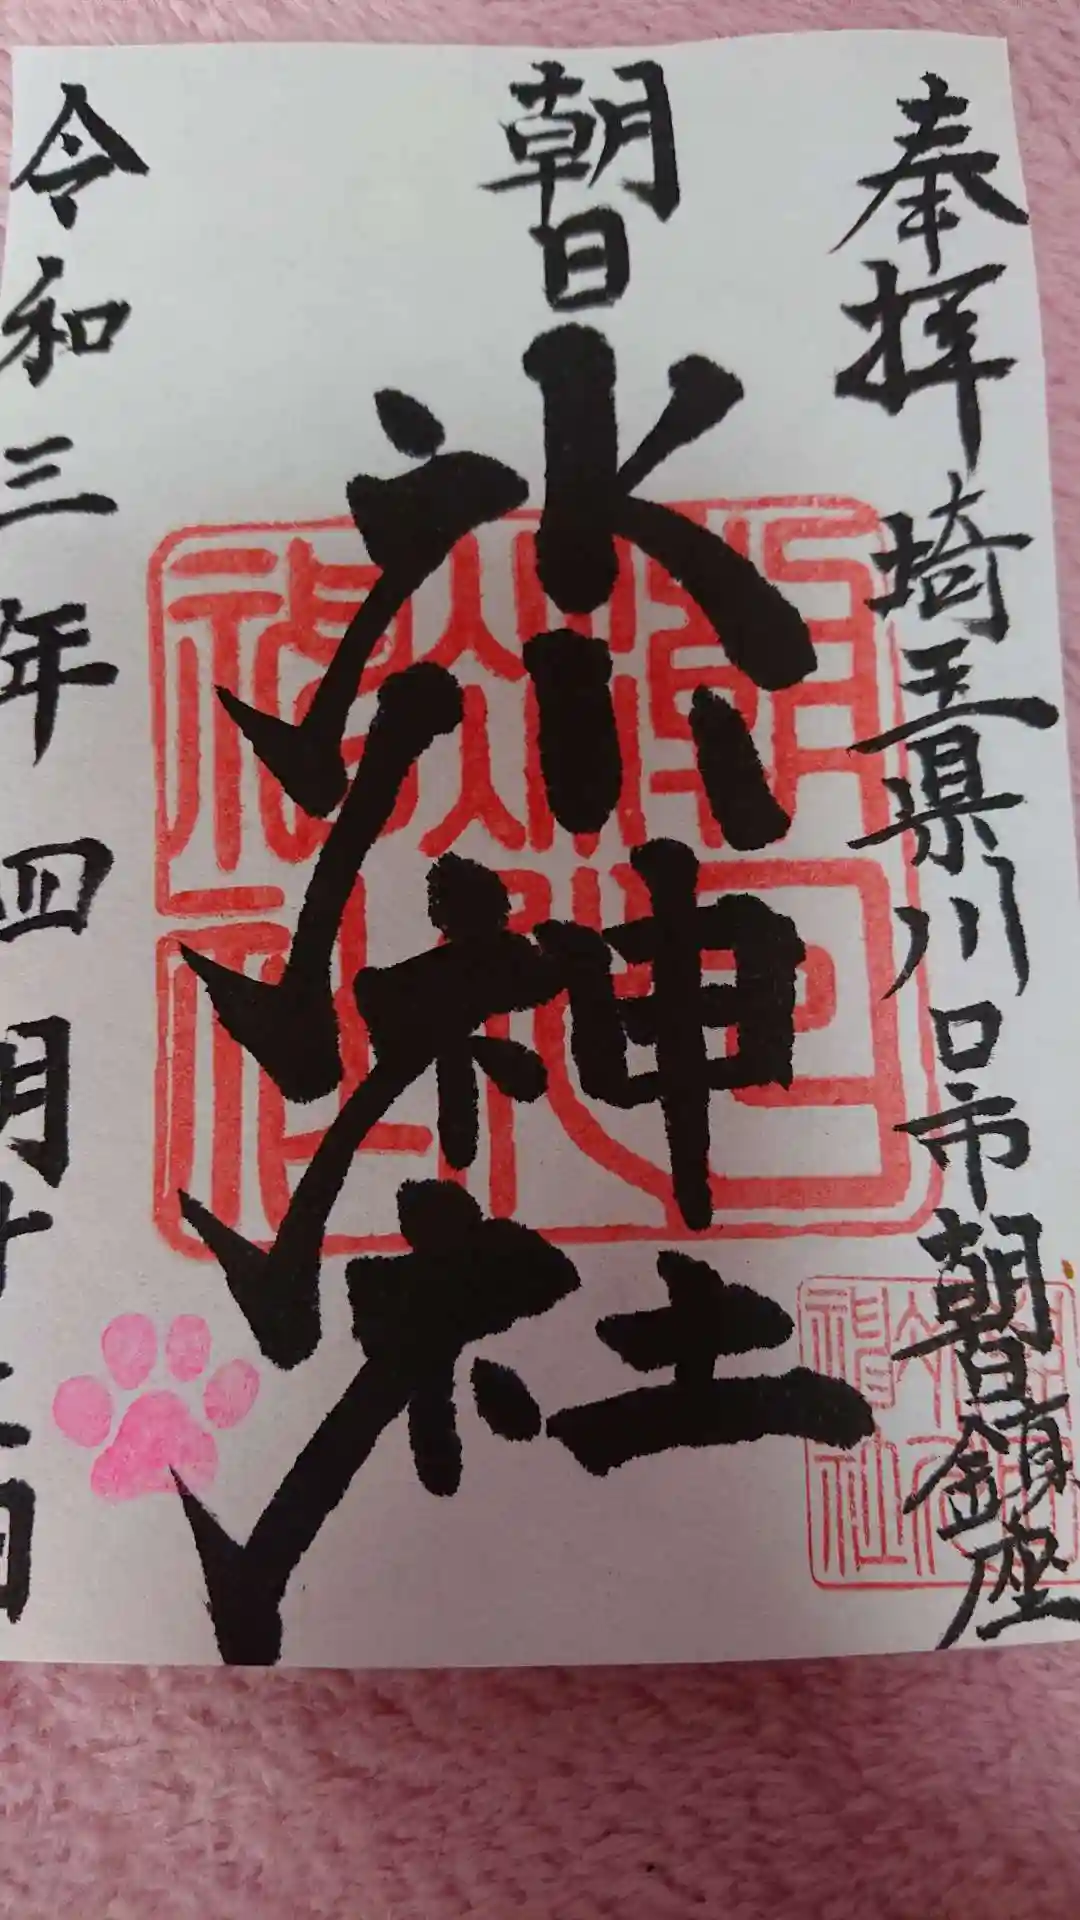 奉拝 埼玉県川口市朝日鎮座
朝日
氷神社
令和三年四月廿二日
朝日氷川神社